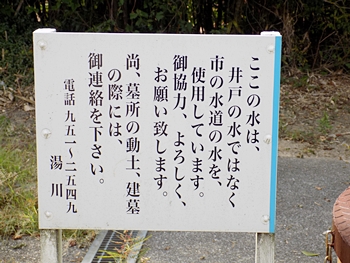 ここの水は、
井戸の水ではなく
市の水道の水を、
使用しています。
御協力、よろしく、
お願い致します。
尚、墓所の動土、建墓
の際には、
御連絡を下さい。
電話 九五一〜二五四九
湯川